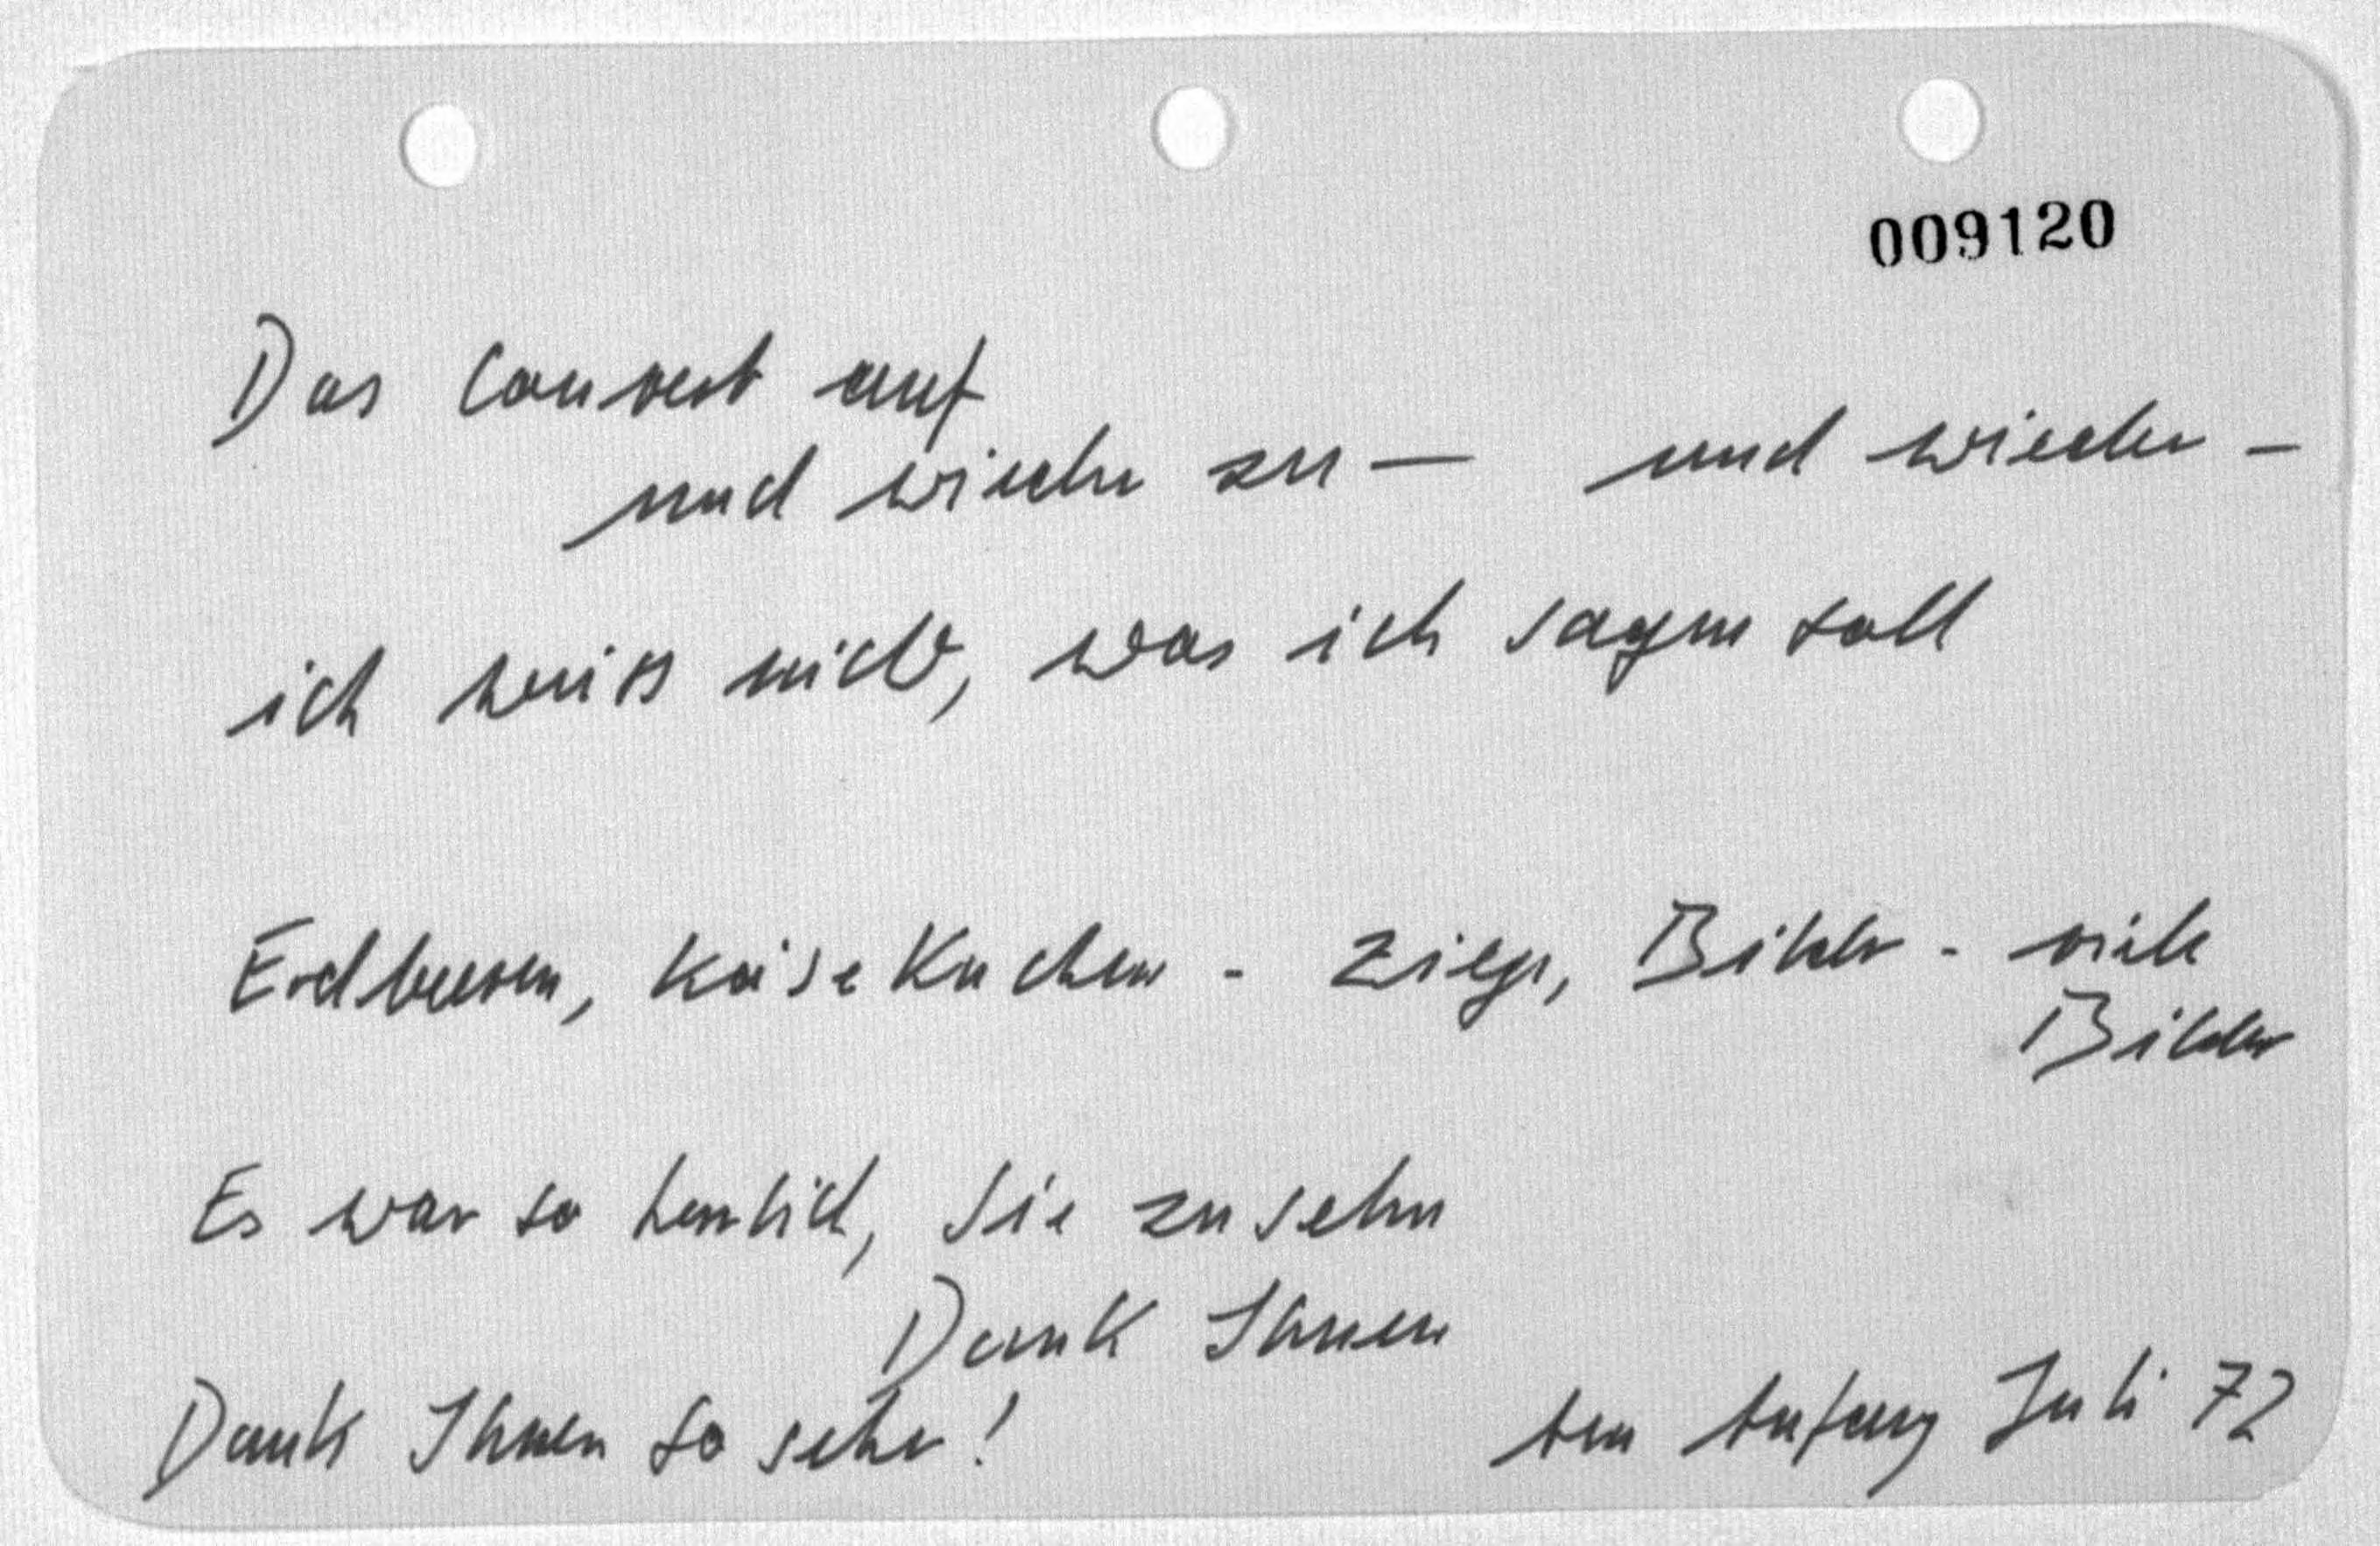 009120
Das Couvert auf
und wieder zu — und wieder –
ich weiss nicht, was ich sagen soll
Erdbeeren, Käsekuchen - Ziege, Bilder - viele
Bilder
Es war so herrlich, Sie zu sehn
Dank Ihnen
Dank Ihnen so sehr! Anfang Juli 72